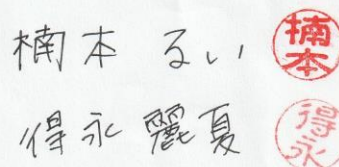 楠本 るい 楠本
得永 麗夏 得永